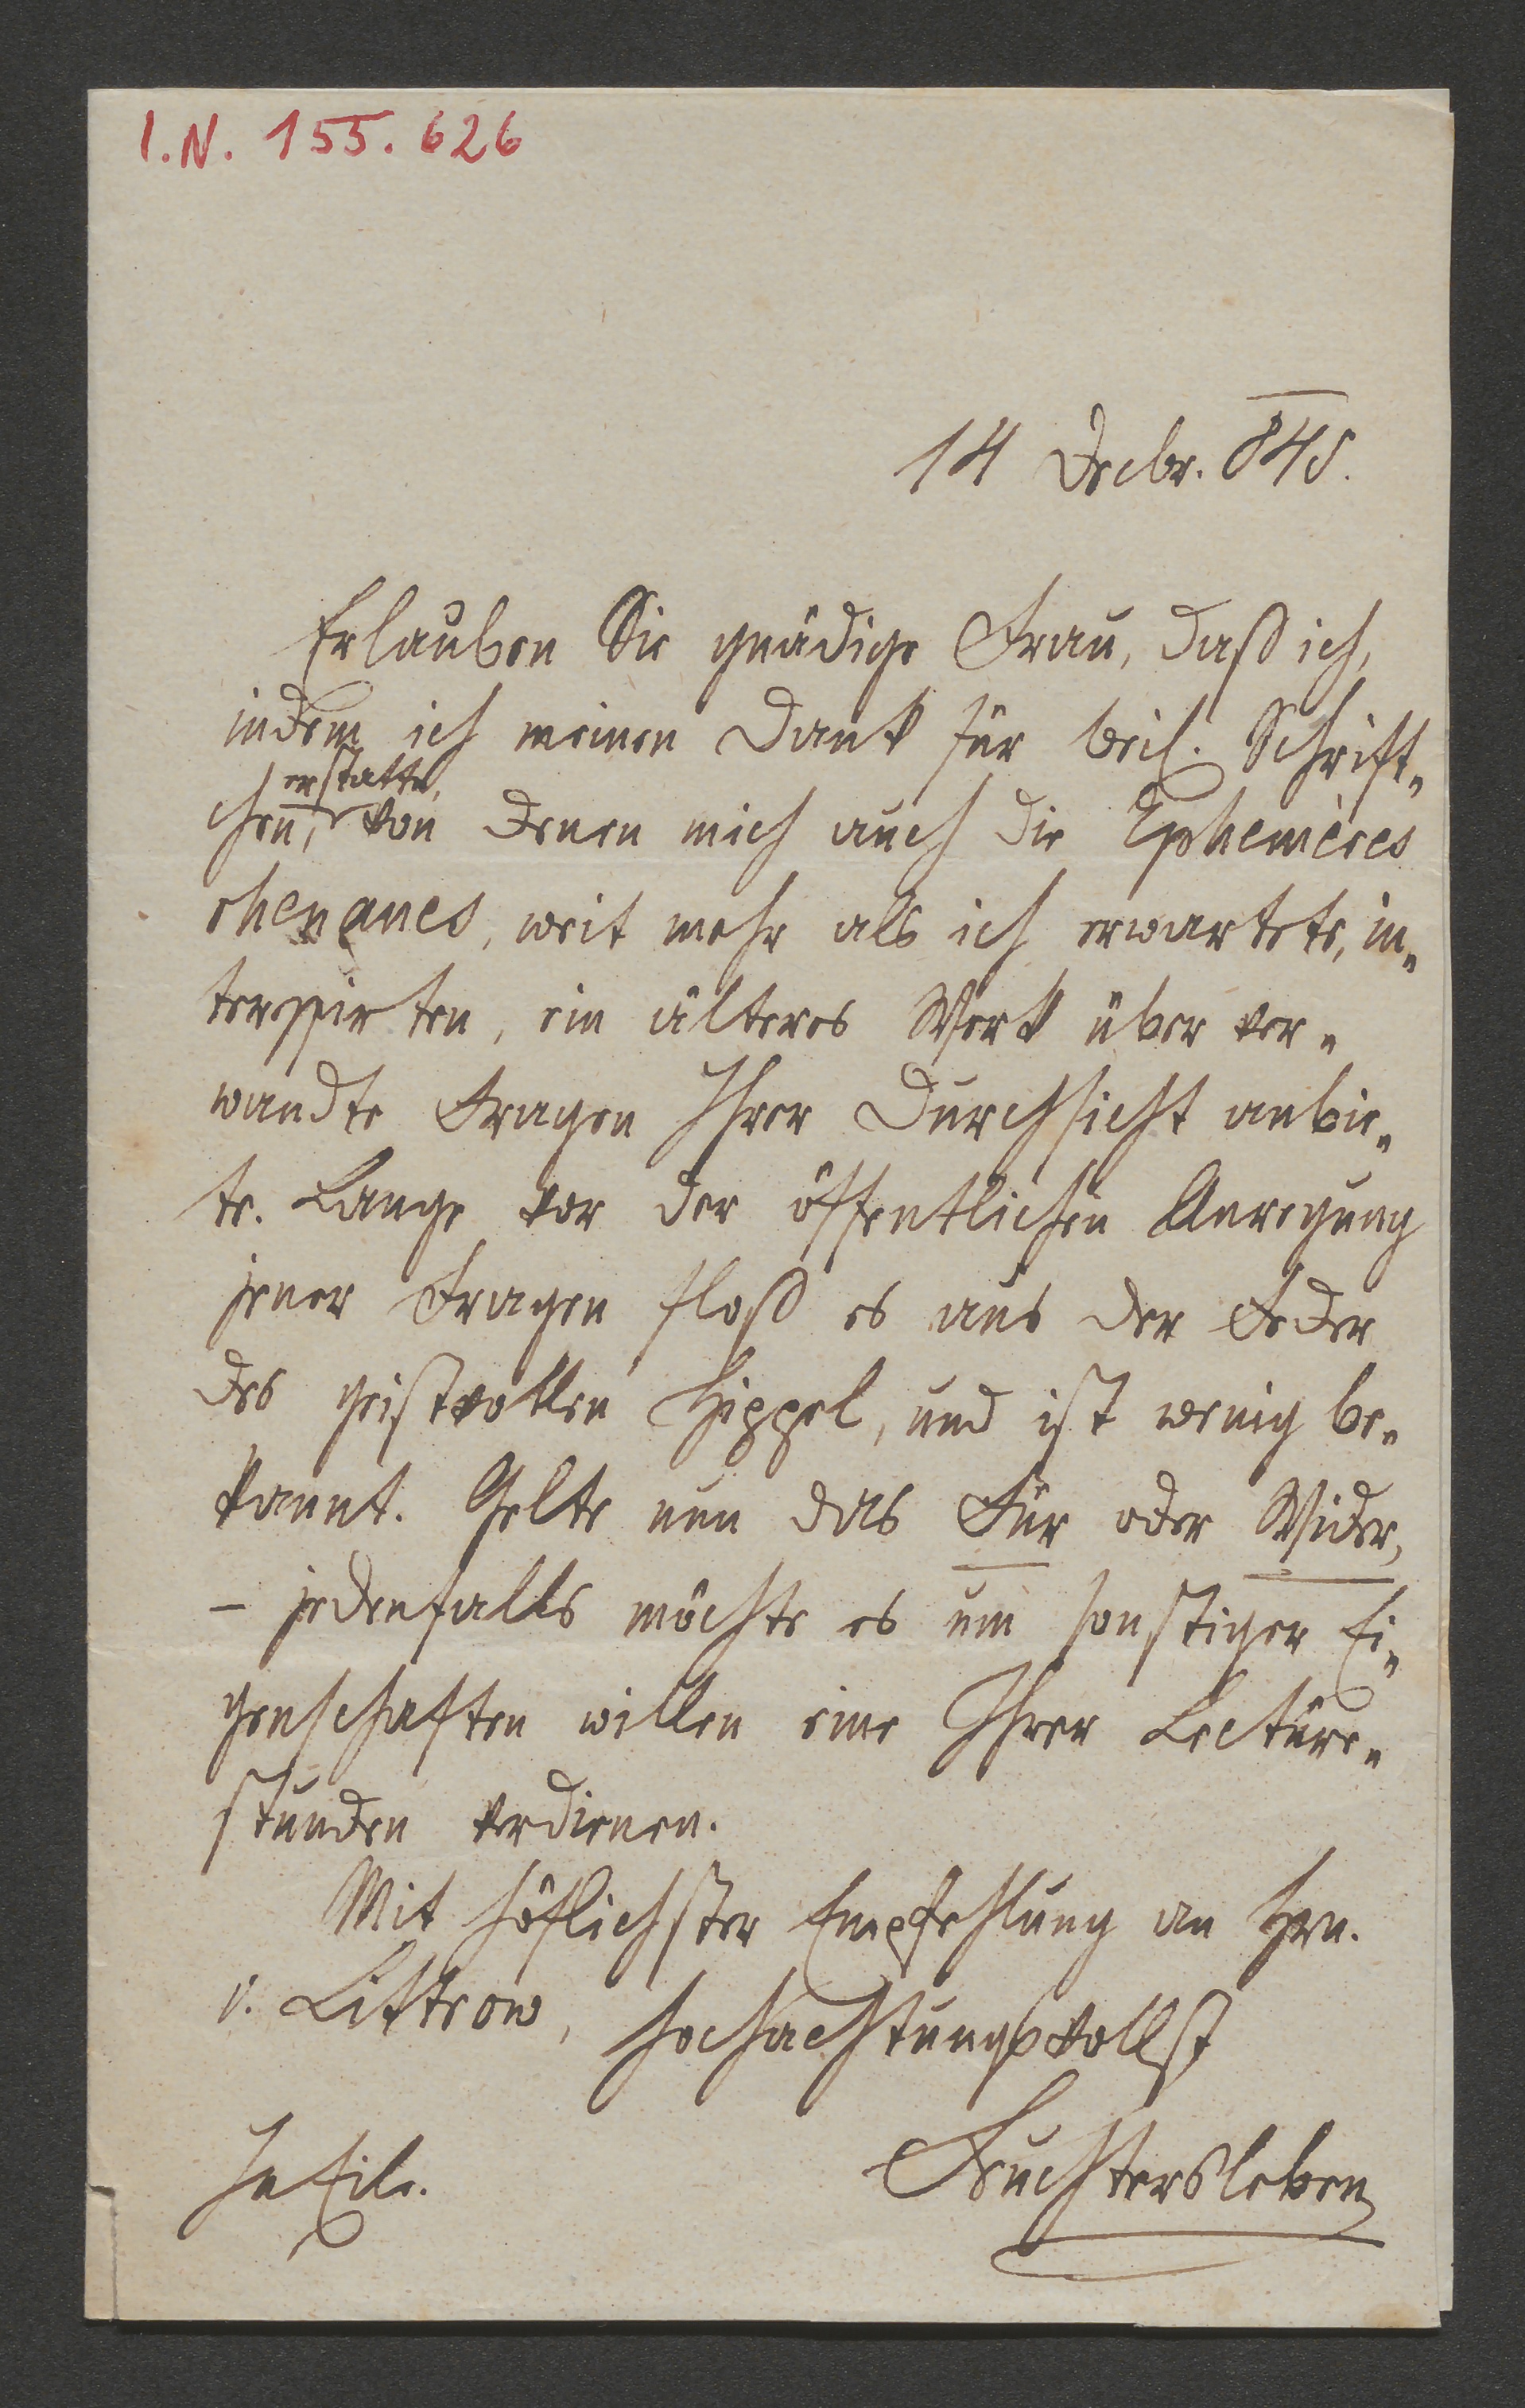 I.N. 155.626
14 Decbr. 845.
Erlauben Sie gnädige Frau, daß ich,
indem ich meinen Dank für beil. Schrift-
erstatte,
chen, von denen mich auch die Ephemères
rhenanes, weit mehr als ich erwartete, in-
teressirten, ein älteres Werk über ver-
wandte Fragen Ihrer Durchsicht anbie-
te. Lange vor der öffentlichen Anregung
jener Fragen floß es aus der Feder
des geistvollen Hippel, und ist wenig be-
kannt. Gelte nun das Für oder Wider,
– jedenfalls möchte es um sonstiger Ei-
genschaften willen eine Ihrer Lectüre-
stunden verdienen.
Mit höflichster Empfehlung an Hrn.
v. Littrow, hochachtungsvollst
In Eile. Feuchtersleben